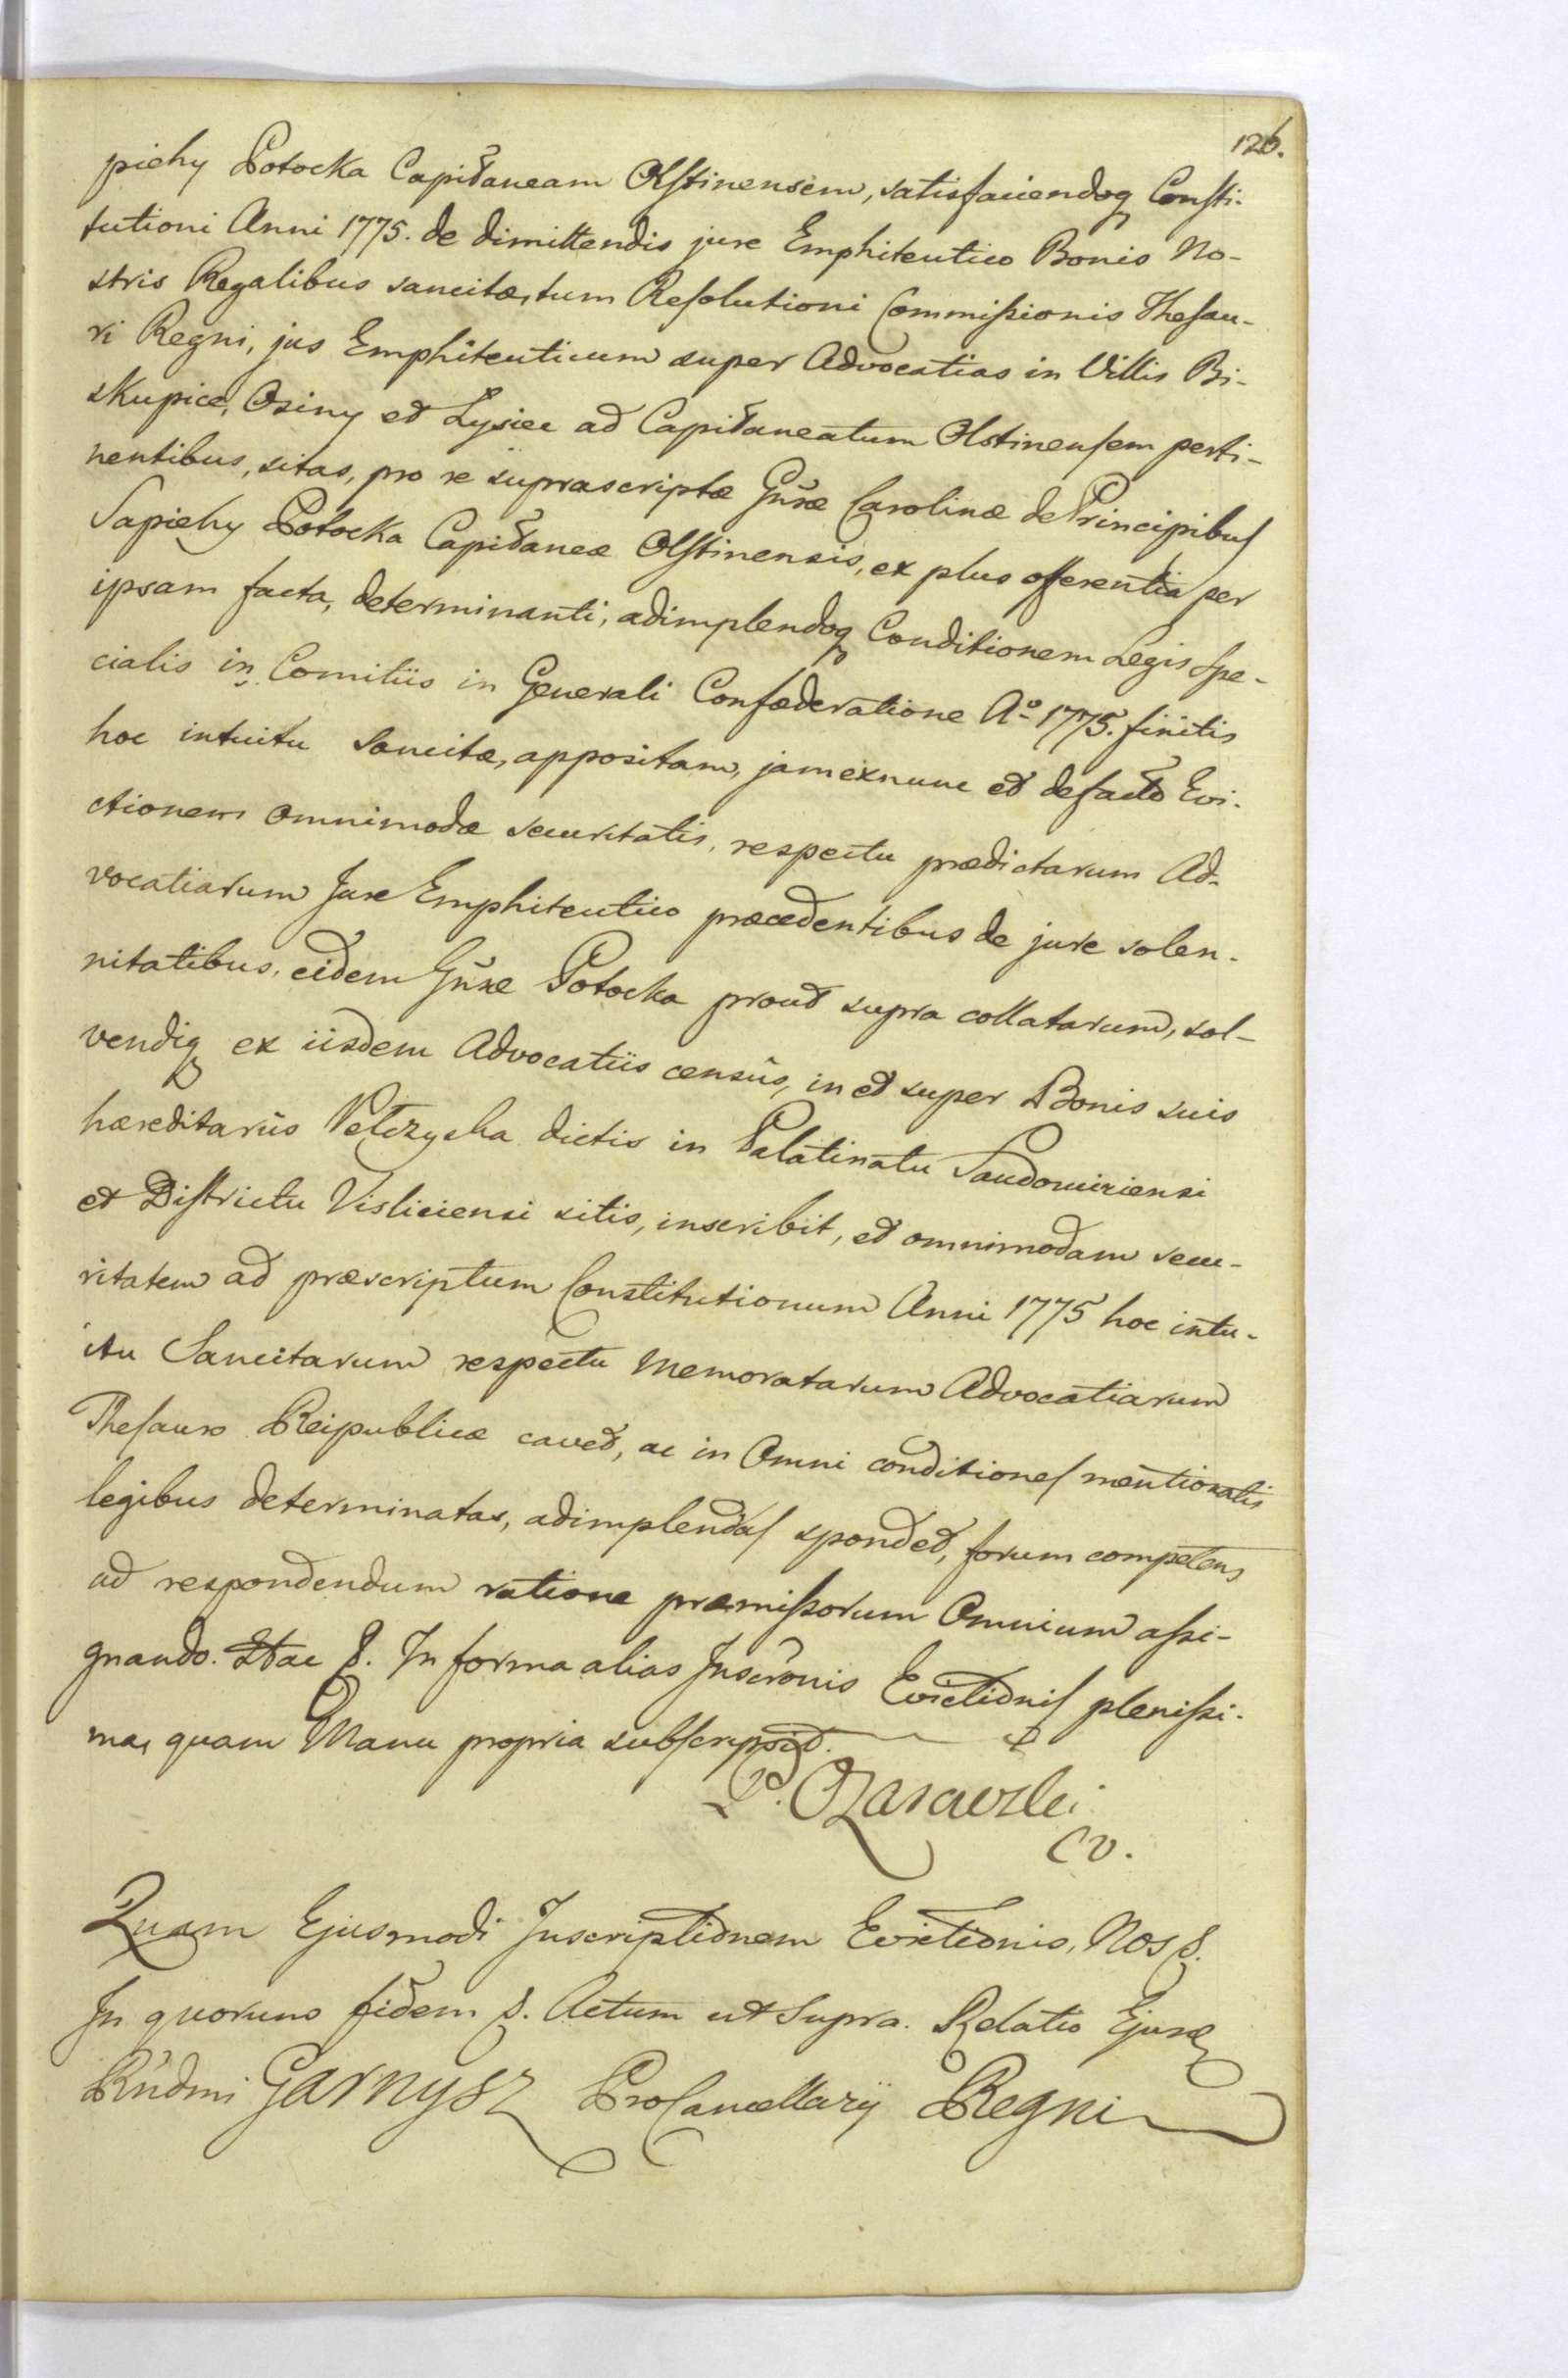 126.
piehy Potocka Capitaneam Olstinensem, satisfaciendoq Consti-
tutioni Anni 1775. de dimittendis jure Emphiteutico Bonis No-
stris Regalibus sancitæ, tum Resolutioni Commissionis Thesau-
ri Regni, jus Emphiteuticum super Advocatias in Villis Bi-
skupice, Osiny et Lysiec ad Capitaneatum Olstinensem perti-
nentibus, sitas, pro re suprascriptæ Gnsæ Carolinæ de Principibus
Sapiehy Potocka Capitaneæ Olstinensis, ex plus offerentia per
ipsam facta, determinanti, adimplendoq Conditionem Legis Spe-
cialis in Comitiis in Generali Confæderatione Aº 1775. finitis
hoc intuitu Sancitæ, appositam, jam exnunc et defacto Evi-
ctionem omnimodæ securitatis, respectu prædictarum Ad-
vocatiarum Jure Emphiteutico præcedentibus de jure solen-
nitatibus, eidem Gnsæ Potocka prout supra collatarum, sol-
vendiq ex iisdem Advocatiis censûs, in et super Bonis suis
hæreditariis Pełczyska dictis in Palatinatu Sandomiriensi
et Districtu Visliciensi sitis, inscribit, et omnimodam secu-
ritatem ad præscriptum Constitutionum Anni 1775 hoc intu-
itu Sancitarum respectu Memoratarum Advocatiarum
Thesauro Reipublicæ cavet, ac in Omni conditiones mentionatis
legibus determinatas, adimplendas spondet, forum competens
ad respondendum ratione præmissorum Omnium assi-
gnando. Hac P. In forma alias Inscrõnis Evictionis plenissi-
ma, quam Manu propria subscripsit.
P. Ożarowski
Quam Ejusmodi Inscriptionem Evictionis, Nos P.
In quorum fidem P. Actum ut Supra. Relatio Ejusd
Rndmi Garnysz ProCancellarij Regni